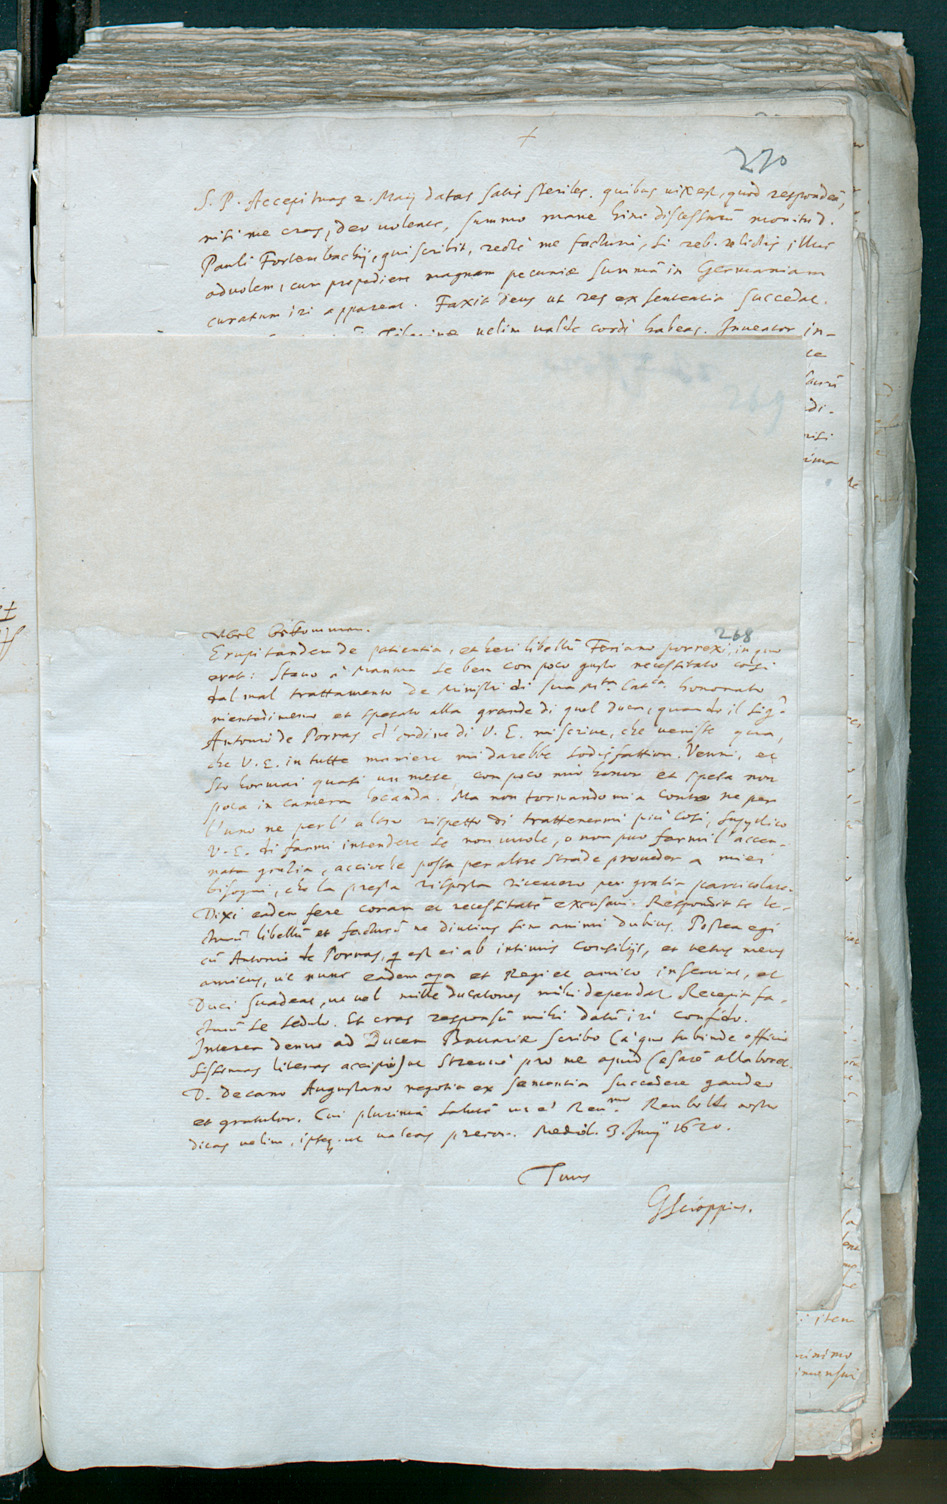 270
S. P. Accepi tuas 2. Maij datas satis steriles. quibus vix est, quod respondeã,
nisi me cras, deo volente, summo mane hinc discessurũ monitu D.
Pauli Fortenbachij, qui scribit, recte me facturũ, si reb. relictis, illuc
advolem, cum propediem magnam pecuniæ summã in Germaniam
curatum iri appareat. Faxit deus ut res ex sententia succedat.
velim valde cordi habeas. Inventor in-
268
Erupi tandem de patientia, et heri libellũ Feriano porrexi, in quo
erat: Stavo à Mantua se ben con poco gusto necessitato così
dal mal trattamento de Ministri di sua Mta. Catca. honorato
nientedimeno et spesato alla grande di quel Duca, quando il Sigr.
Antonio de Porras d'ordine di V. E. mi scrive, che venisse qua,
che V. E. in tutte maniere mi darebbe sodisfattion. Venni, et
sto hormai quasi un mese con poco mio honor et spesa non
poca in camera locanda. Ma non tornando mia conto ne per
l'uno ne per l'altro rispetto di trattenermi più così, supplico
V. E. di farmi intendere se non vuole, o non può farmi l'accen-
nata gratia, acciochè possa per altre strade proveder a miei
bisogni, che la presta risposta ricevero per gratia particolare.
Dixi eadem fere coram et necessitatẽ excusavi. Respondit se le-
cturũ libellũ et facturũ ne diutius sim animi dubius. Postea egi
cũ Antonio de Porras, q est ei ab intimis consilijs, et vetus meus
amicus, ut nunc eadem opa et Regi et amico inserviat, et
Duci suadeat, ut vel mille ducatones mihi dependat. Recepit fa-
cturũ se sedulo. Et cras responsũ mihi datũ iri confido.
Interea denuo ad Ducem Bavariæ scribo (à quo subinde officio
sissimas literas accipio) ut strenuè pro me apud Cesarẽ allaboret.
D. decano Augustano negotia ex sententia succedere gaudeo
et gratulor. Cui plurimã salutẽ ut et Renmo. nostro
dicas velim, ipseq. ut valeas precor. Mediol. 3. Junij 1620.
Tuus
GScioppius.